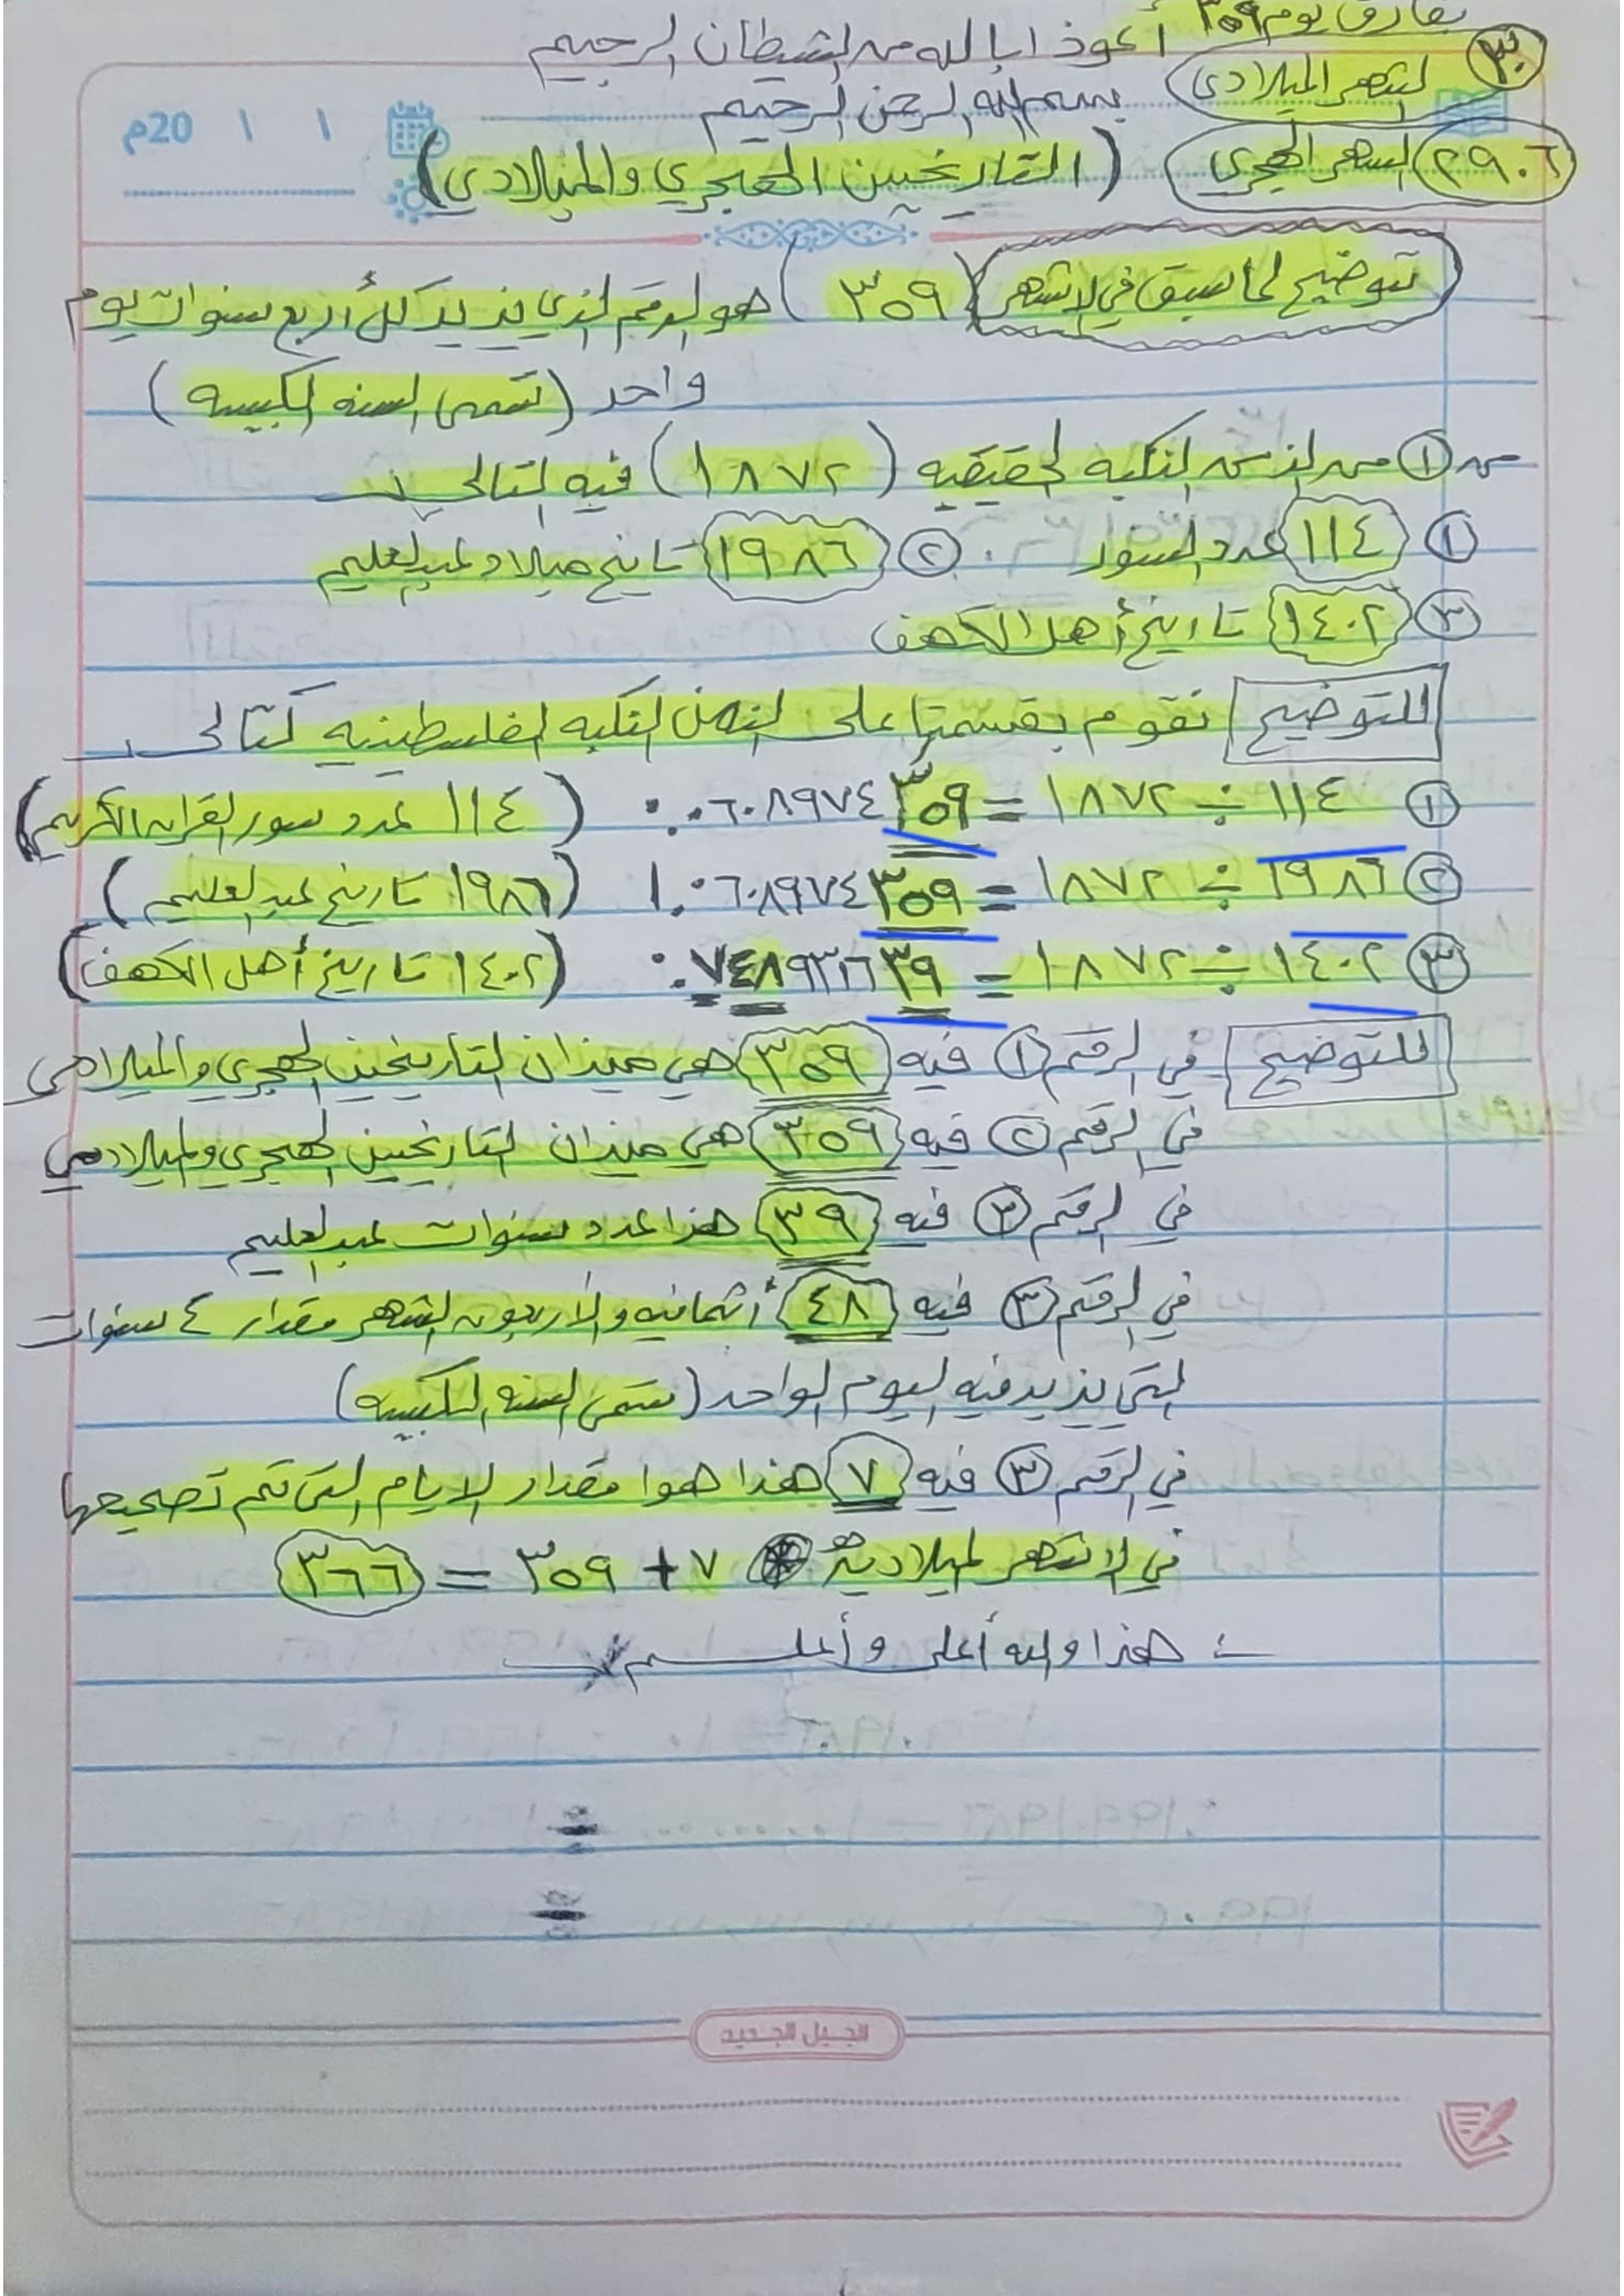 بفارق يوم ٣٥٩ أعوذ ابالله من الشيطان الرجيم
٣٠ الشهر الميلادي بسم الله الرحمن الرحيم
20م
٢٩.٦ الشهر الهجري (التاريخين الهجري والميلادي)
توضيح لما سبق في الاشهر (٣٥٩) هو الرقم الذي يزيد كل أربع سنوات يوم
واحد (تسمى السنه الكبيسه)
س ① من الزمن النكبه الحقيقيه (١٨٧٢) فيه التالي :-
① ١١٤ عدد السور ② ١٩٨٦ تاريخ ميلاد عبدالعليم
③ ١٤٠٢ تاريخ أهل الكهف
للتوضيح نقوم بقسمتها على الزمن النكبه الفلسطينيه كتالي :-
① ١١٤ ÷ ١٨٧٢ = ٠.٠٦٠٨٩٧٤٣٥٩ (١١٤ عدد سور القران الكريم)
② ١٩٨٦ ÷ ١٨٧٢ = ١.٠٦٠٨٩٧٤٣٥٩ (١٩٨٦ تاريخ عبدالعليم)
③ ١٤٠٢ ÷ ١٨٧٢ = ٠.٧٤٨٩٣١٦٢٣٩ (١٤٠٢ تاريخ أهل الكهف)
للتوضيح في الرقم ① فيه ٣٥٩ هي ميزان التاريخين الهجري والميلادي
في الرقم ② فيه ٣٥٩ هي ميزان التاريخين الهجري والميلادي
في الرقم ③ فيه ٣٩ هذا عدد سنوات عبدالعليم
في الرقم ③ فيه ٤٨ أثمانيه والأربعون الشهر مقدار ٤ سنوات
التي يزيد فيه اليوم الواحد (تسمى السنه الكبيسه)
في الرقم ③ فيه ٧ هذا هوا مقدار الايام التي تم تصحيحها
في الاشهر الميلاديه ٧ + ٣٥٩ = ٣٦٦
:- هذا والله أعلى وأعلم
الجيل الجديد